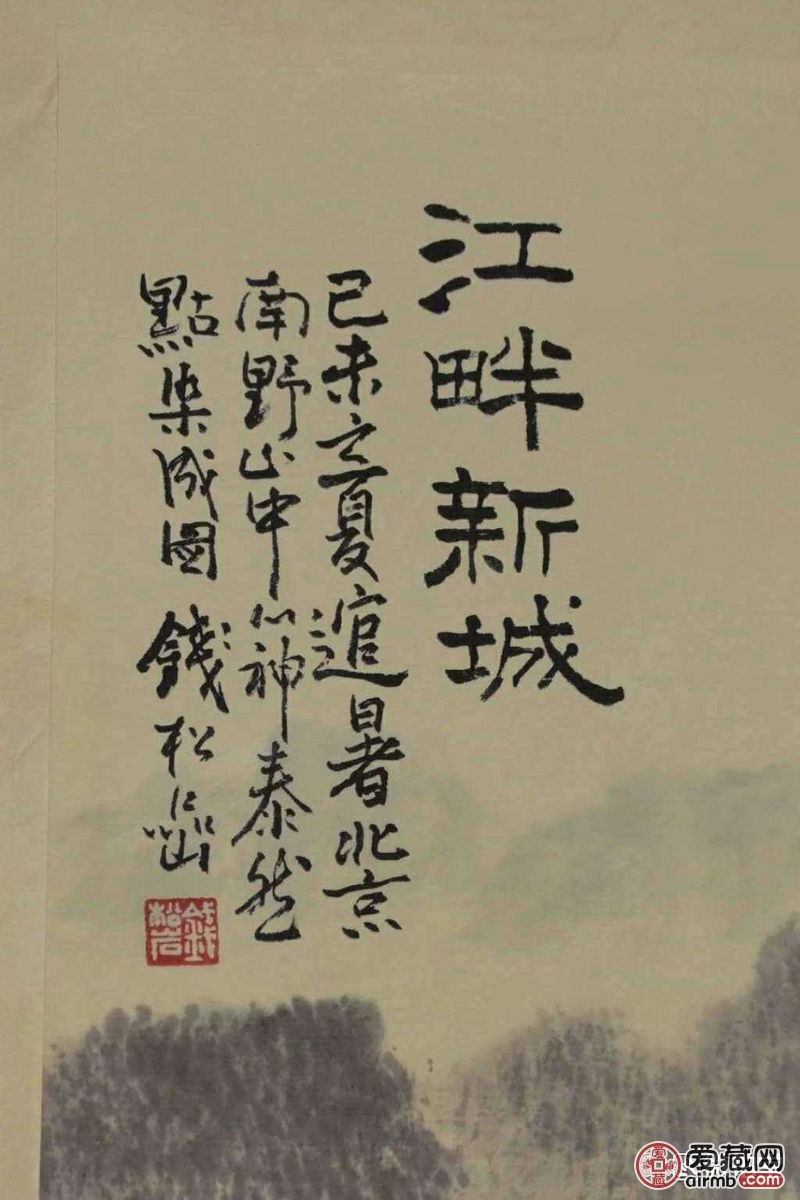 江畔新城
己未立夏逭暑北京
南野山中心神泰然
點染成圖 錢松喦
爱藏网
airmb.com